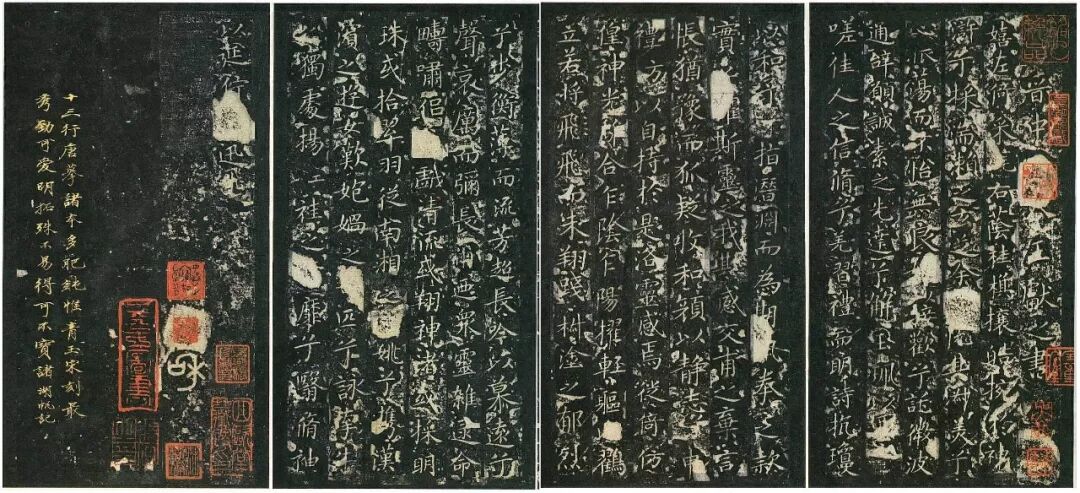 晉中令王獻之書
嬉左倚采旄右蔭桂旗攘皓捥於神
滸兮採湍瀨之玄芝余情悅其淑美兮
心振蕩而不怡無良媒以接歡兮託微波
通辭願誠素之先達兮解玉珮而要之
嗟佳人之信脩兮羌習禮而明詩抗瓊
以和予兮指潛淵而為期執拳之款
實兮懼斯靈之我欺感交甫之棄言
悵猶豫而狐疑收和顏以靜志兮申
禮方以自持於是洛靈感焉徙倚仿
偟神光離合乍陰乍陽擢輕軀以鶴
立若將飛而未翔踐椒塗之郁烈
兮步蘅薄而流芳超長吟以慕遠兮
聲哀厲而彌長爾迺衆靈雜遝命
疇嘯侶或戲清流或翔神渚或採明
珠或拾翠羽從南湘之二姚兮攜漢
濱之遊女歎匏媧之無匹兮詠牽牛之
獨處揚輕袿之猗靡兮翳脩袖
以延佇體迅飛
十三行唐摹諸本多肥鈍惟青玉宋刻最
考勁可愛明拓殊不易得可不寶諸